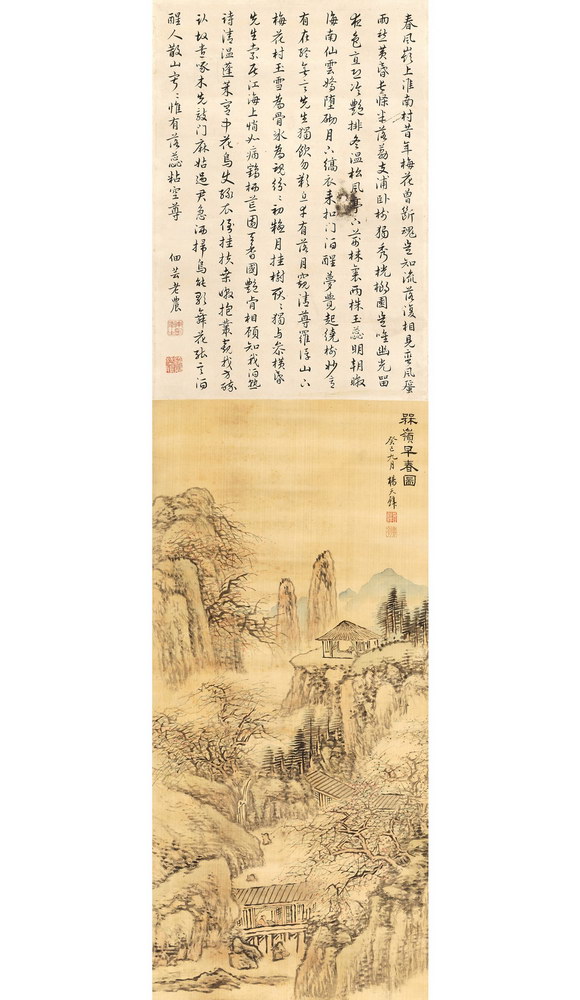 春風嶺上淮南村昔年梅花曾斷魂豈知流落復相見蠻風蜑
雨愁黃昏長條半落荔支浦卧樹獨秀桄榔園豈唯幽光留
夜色直恐冷艷排冬溫松風亭下荊棘裏兩株玉蕊明朝暾
海南仙雲嬌墮砌月下縞衣來扣門酒醒夢覺起繞樹妙意
有在終無言先生獨飲勿歎息幸有落月窺清尊羅浮山下
梅花村玉雪為骨冰為魂紛紛初疑月挂樹耿耿獨與參橫昏
先生索居江海上悄如病鶴棲荒園天香國艷肯相顧知我酒熟
詩清溫蓬萊宮中花鳥使綠衣倒挂扶桑暾抱叢窺我方醉
臥故遣啄木先敲門麻姑過君急洒掃鳥能歌舞花能言酒
醒人散山寂寂惟有落蕊粘空尊
佃芸老農
槑嶺早春圖
癸巳九月 楊天